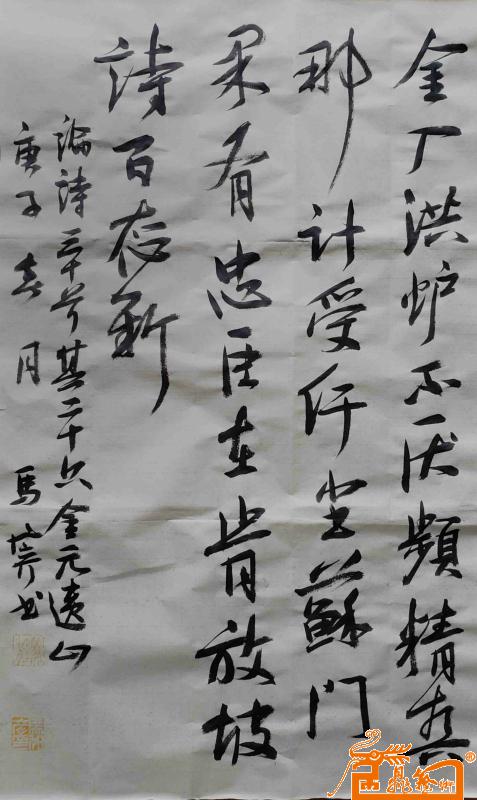 金入洪炉不厌頻精真
那计受纤尘蘇门
果有忠臣在肯放坡
詩百态新
論詩三十首其二十六金元遗山
庚子春月 馬 书